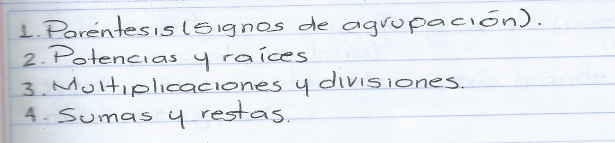 1. Paréntesis (signos de agrupación).
2. Potencias y raíces
3. Multiplicaciones y divisiones.
4. Sumas y restas.